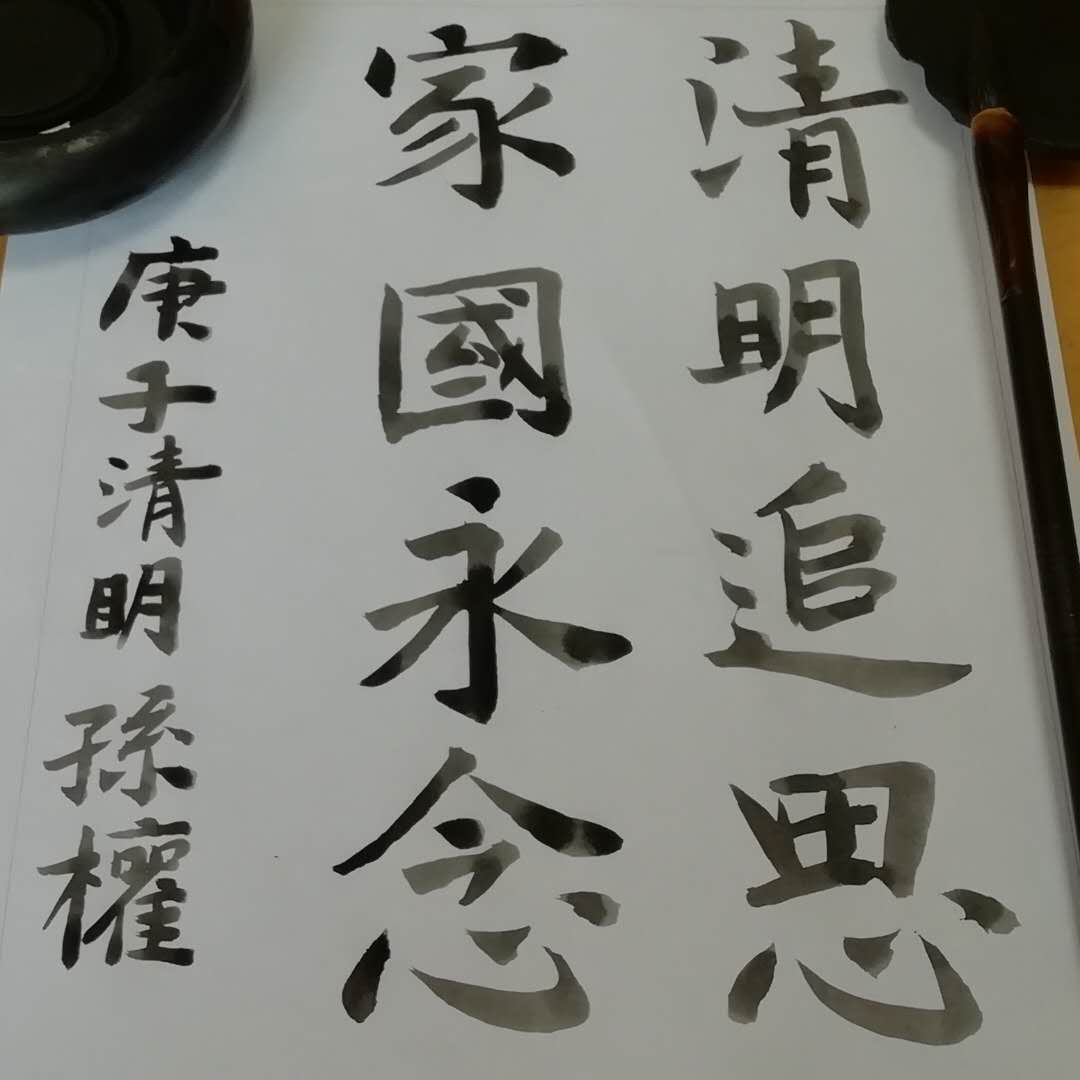 清明追思
家國永念
庚子清明 孫權